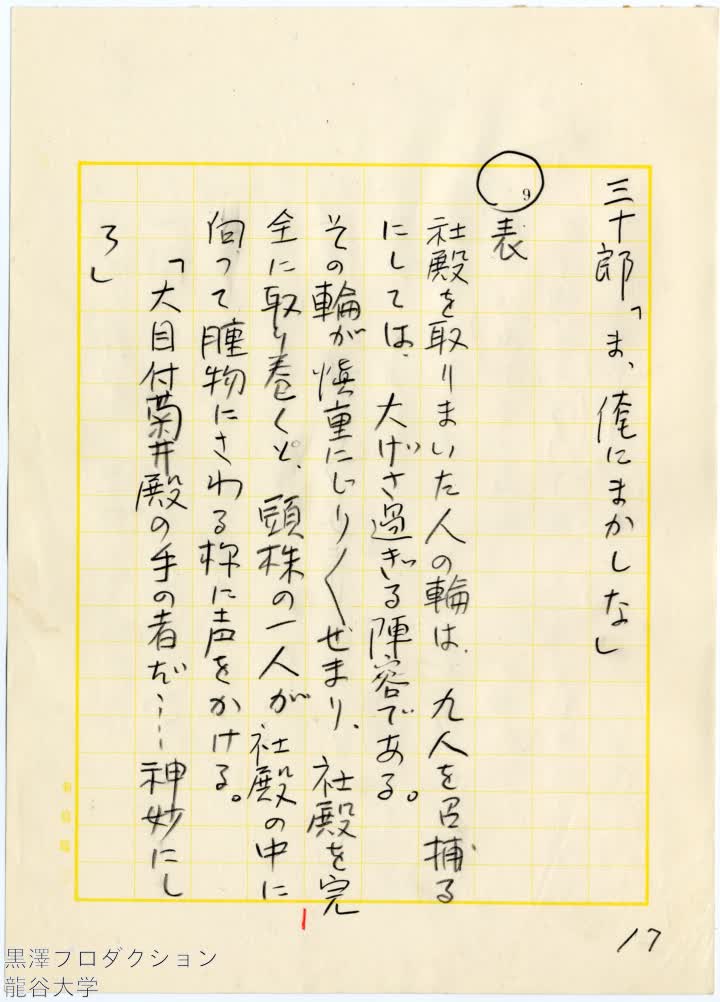 三十郎「ま、俺にまかしな」
9
表
社殿を取りまいた人の輪は、九人を召捕る
にしては、大げさ過ぎる陣容である。
その輪が慎重にじり〱せまり、社殿を完
全に取り巻くと、頭株の一人が社殿の中に
向って腫物にさわる様に声をかける。
「大目付菊井殿の手の者だ……神妙にし
ろ」
17
黒澤プロダクション
龍谷大学